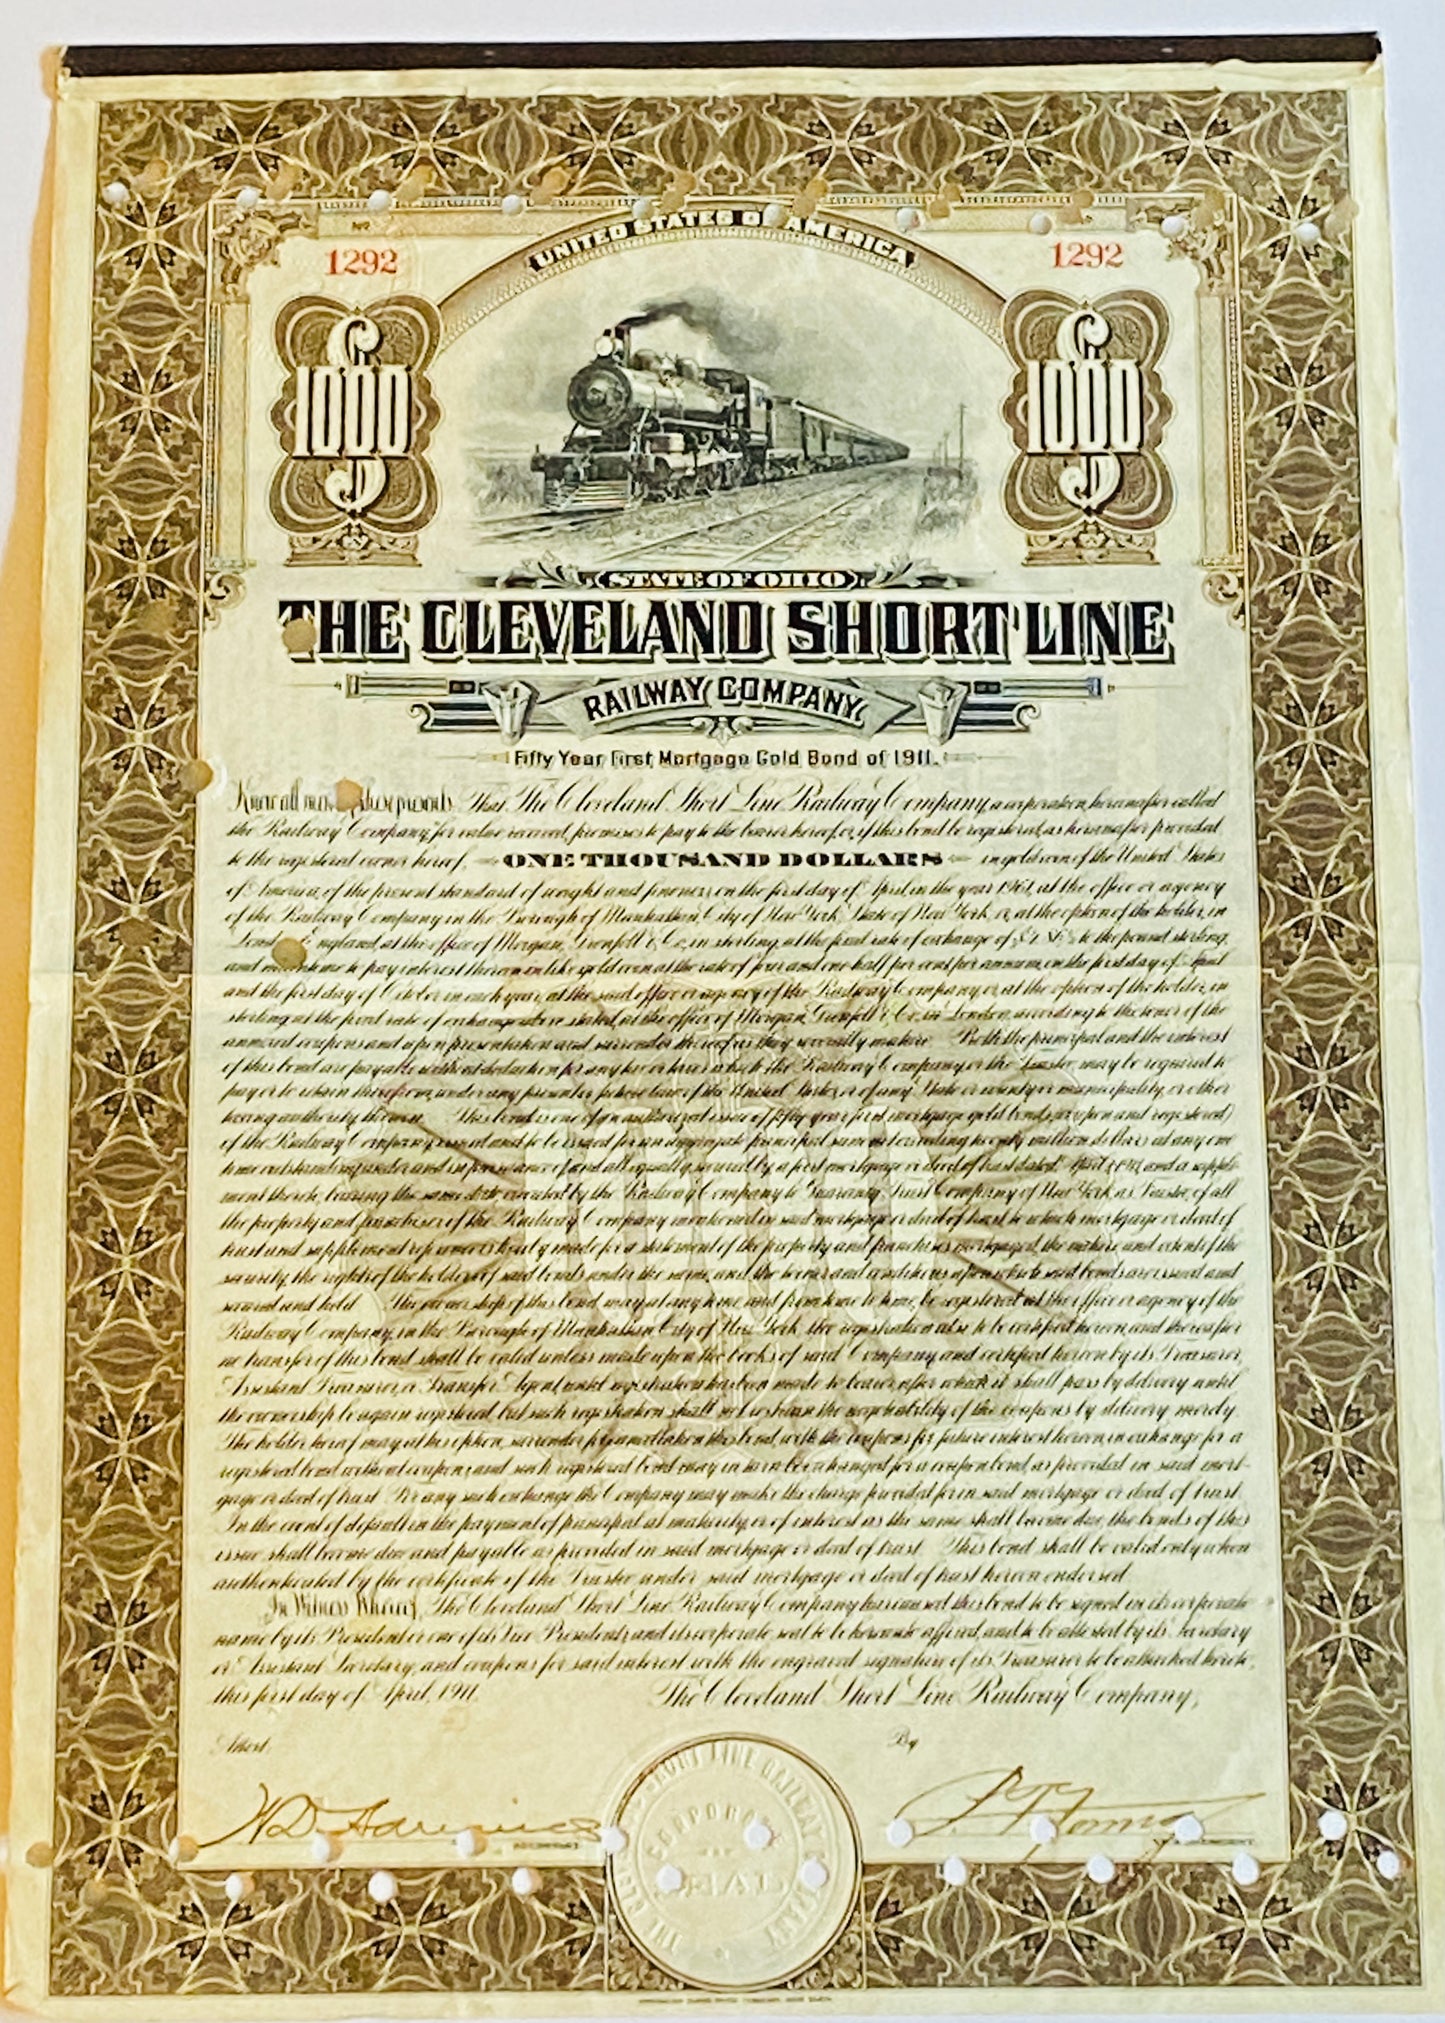 Nº
1292
1292
UNITED STATES OF AMERICA
$1000
$1000
STATE OF OHIO
THE CLEVELAND SHORT LINE
RAILWAY COMPANY.
Fifty Year First Mortgage Gold Bond of 1911.
Know all men by these presents, That The Cleveland Short Line Railway Company, a corporation, hereinafter called
the "Railway Company," for value received, promises to pay to the bearer hereof, or, if this bond be registered, as hereinafter provided,
to the registered owner hereof, ONE THOUSAND DOLLARS in gold coin of the United States
of America, of the present standard of weight and fineness, on the first day of April, in the year 1961, at the office or agency
of the Railway Company in the Borough of Manhattan, City of New York, State of New York, or, at the option of the holder, in
London, England, at the office of Morgan, Grenfell & Co., in sterling, at the fixed rate of exchange of to the pound sterling,
and meantime to pay interest thereon in like gold coin at the rate of four and one half per cent per annum, on the first day of April
and the first day of October in each year, at the said office or agency of the Railway Company or, at the option of the holder, in
sterling at the fixed rate of exchange above stated, at the office of Morgan, Grenfell & Co. in London, according to the tenor of the
annexed coupons and upon presentation and surrender thereof as they severally mature. Both the principal and the interest
of this bond are payable without deduction for any tax or taxes which the Railway Company or the Trustee may be required to
pay or to retain therefrom, under any present or future law of the United States, or of any State or county or municipality, or other
taxing authority therein. This bond is one of an authorized issue of fifty year first mortgage gold bonds (coupon and registered)
of the Railway Company issued and to be issued for an aggregate principal sum not exceeding twenty million dollars at any one
time outstanding under and in pursuance of, and all equally secured by a first mortgage or deed of trust dated April and a supple-
ment thereto, bearing the same date executed by the Railway Company to Guaranty Trust Company of New York, as Trustee, of all
the property and franchises of the Railway Company mentioned in said mortgage or deed of trust to which mortgage or deed of
trust and supplement reference is hereby made for a statement of the property and franchises mortgaged, the nature and extent of the
security, the rights of the holders of said bonds under the same, and the terms and conditions upon which said bonds are issued and
secured and held. The ownership of this bond may at any time and from time to time, be registered at the office or agency of the
Railway Company, in the Borough of Manhattan City of New York, the registration also to be certified hereon, and thereafter
no transfer of this bond shall be valid unless made upon the books of said Company and certified hereon by its Treasurer,
Assistant Treasurer, or Transfer Agent, until registration has been made to bearer, after which it shall pass by delivery until
the ownership be again registered, but such registration shall not restrain the negotiability of the coupons by delivery merely.
The holder hereof may at his option, surrender for cancellation this bond with the coupons for future interest hereon, in exchange for a
registered bond without coupons, and such registered bond may in turn be exchanged for a coupon bond, as provided in said mort-
gage or deed of trust. For any such exchange the Company may make the charge provided for in said mortgage or deed of trust.
In the event of default in the payment of principal at maturity or of interest as the same shall become due, the bonds of this
issue shall become due and payable as provided in said mortgage or deed of trust. This bond shall be valid only when
authenticated by the certificate of the Trustee under said mortgage or deed of trust hereon endorsed.
In Witness Whereof, The Cleveland Short Line Railway Company has caused this bond to be signed in its corporate
name by its President or one of its Vice Presidents, and its corporate seal to be hereunto affixed, and to be attested by its Secretary
or Assistant Secretary, and coupons for said interest with the engraved signature of its Treasurer to be attached hereto,
this first day of April, 1911.
The Cleveland Short Line Railway Company,
Attest,
By
SECRETARY
VICE PRESIDENT
SHORT LINE RAILWAY
CORPORATE
SEAL